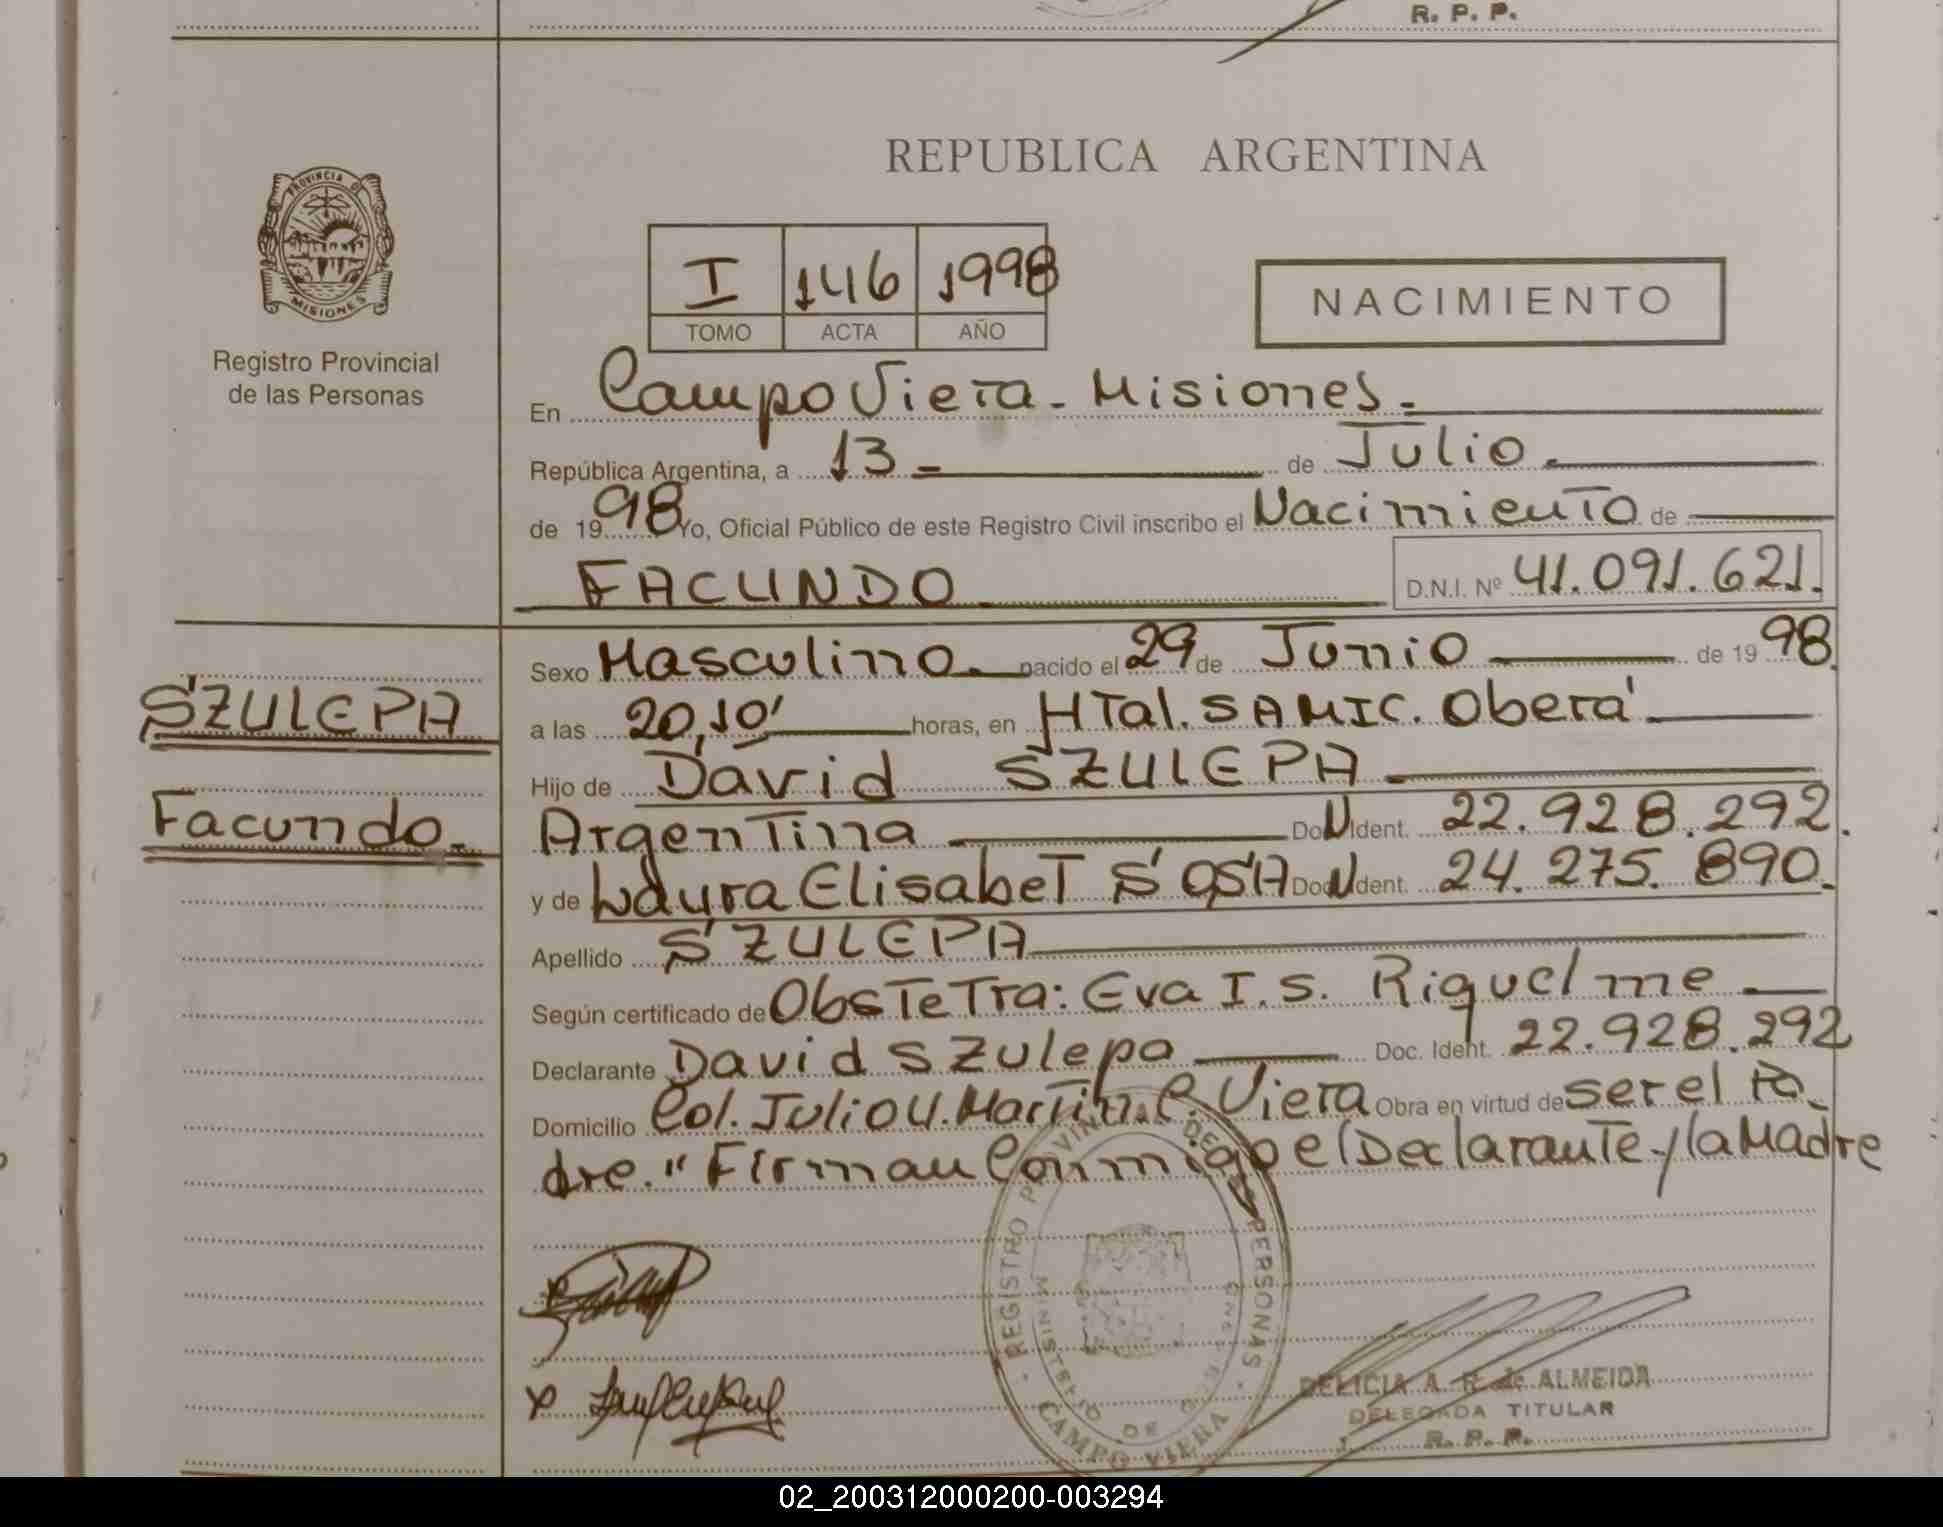 R. P. P.
PROVINCIA DE
MISIONES
Registro Provincial
de las Personas
REPUBLICA ARGENTINA
I 146 1998
TOMO ACTA AÑO
NACIMIENTO
En Campo Viera - Misiones -
República Argentina, a 13 - de Julio
de 1998 Yo, Oficial Público de este Registro Civil inscribo el Nacimiento de
FACUNDO D.N.I. Nº 41.091.621.
SZULEPA
Facundo.
Sexo Masculino. nacido el 29 de Junio de 1998.
a las 20,10' horas, en HTal. SAMIC. Oberá
Hijo de David SZULEPA
Argentina Doc N Ident. 22.928.292.
y de Laura Elisabet SOSA Doc N Ident. 24.275.890.
Apellido SZULEPA
Según certificado de Obstetra: Eva I. S. Riquelme
Declarante David SZulepa Doc. Ident. 22.928.292
Domicilio Col. Julio U. Martin C. Viera Obra en virtud de ser el Pa
dre." Firman Conmigo el Declarante y la Madre
REGISTRO PROVINCIAL DE LAS PERSONAS
MINISTERIO DE
CAMPO VIERA
DELICIA A. R. de ALMEIDA
DELEGADA TITULAR
R. P. P.
02_200312000200-003294